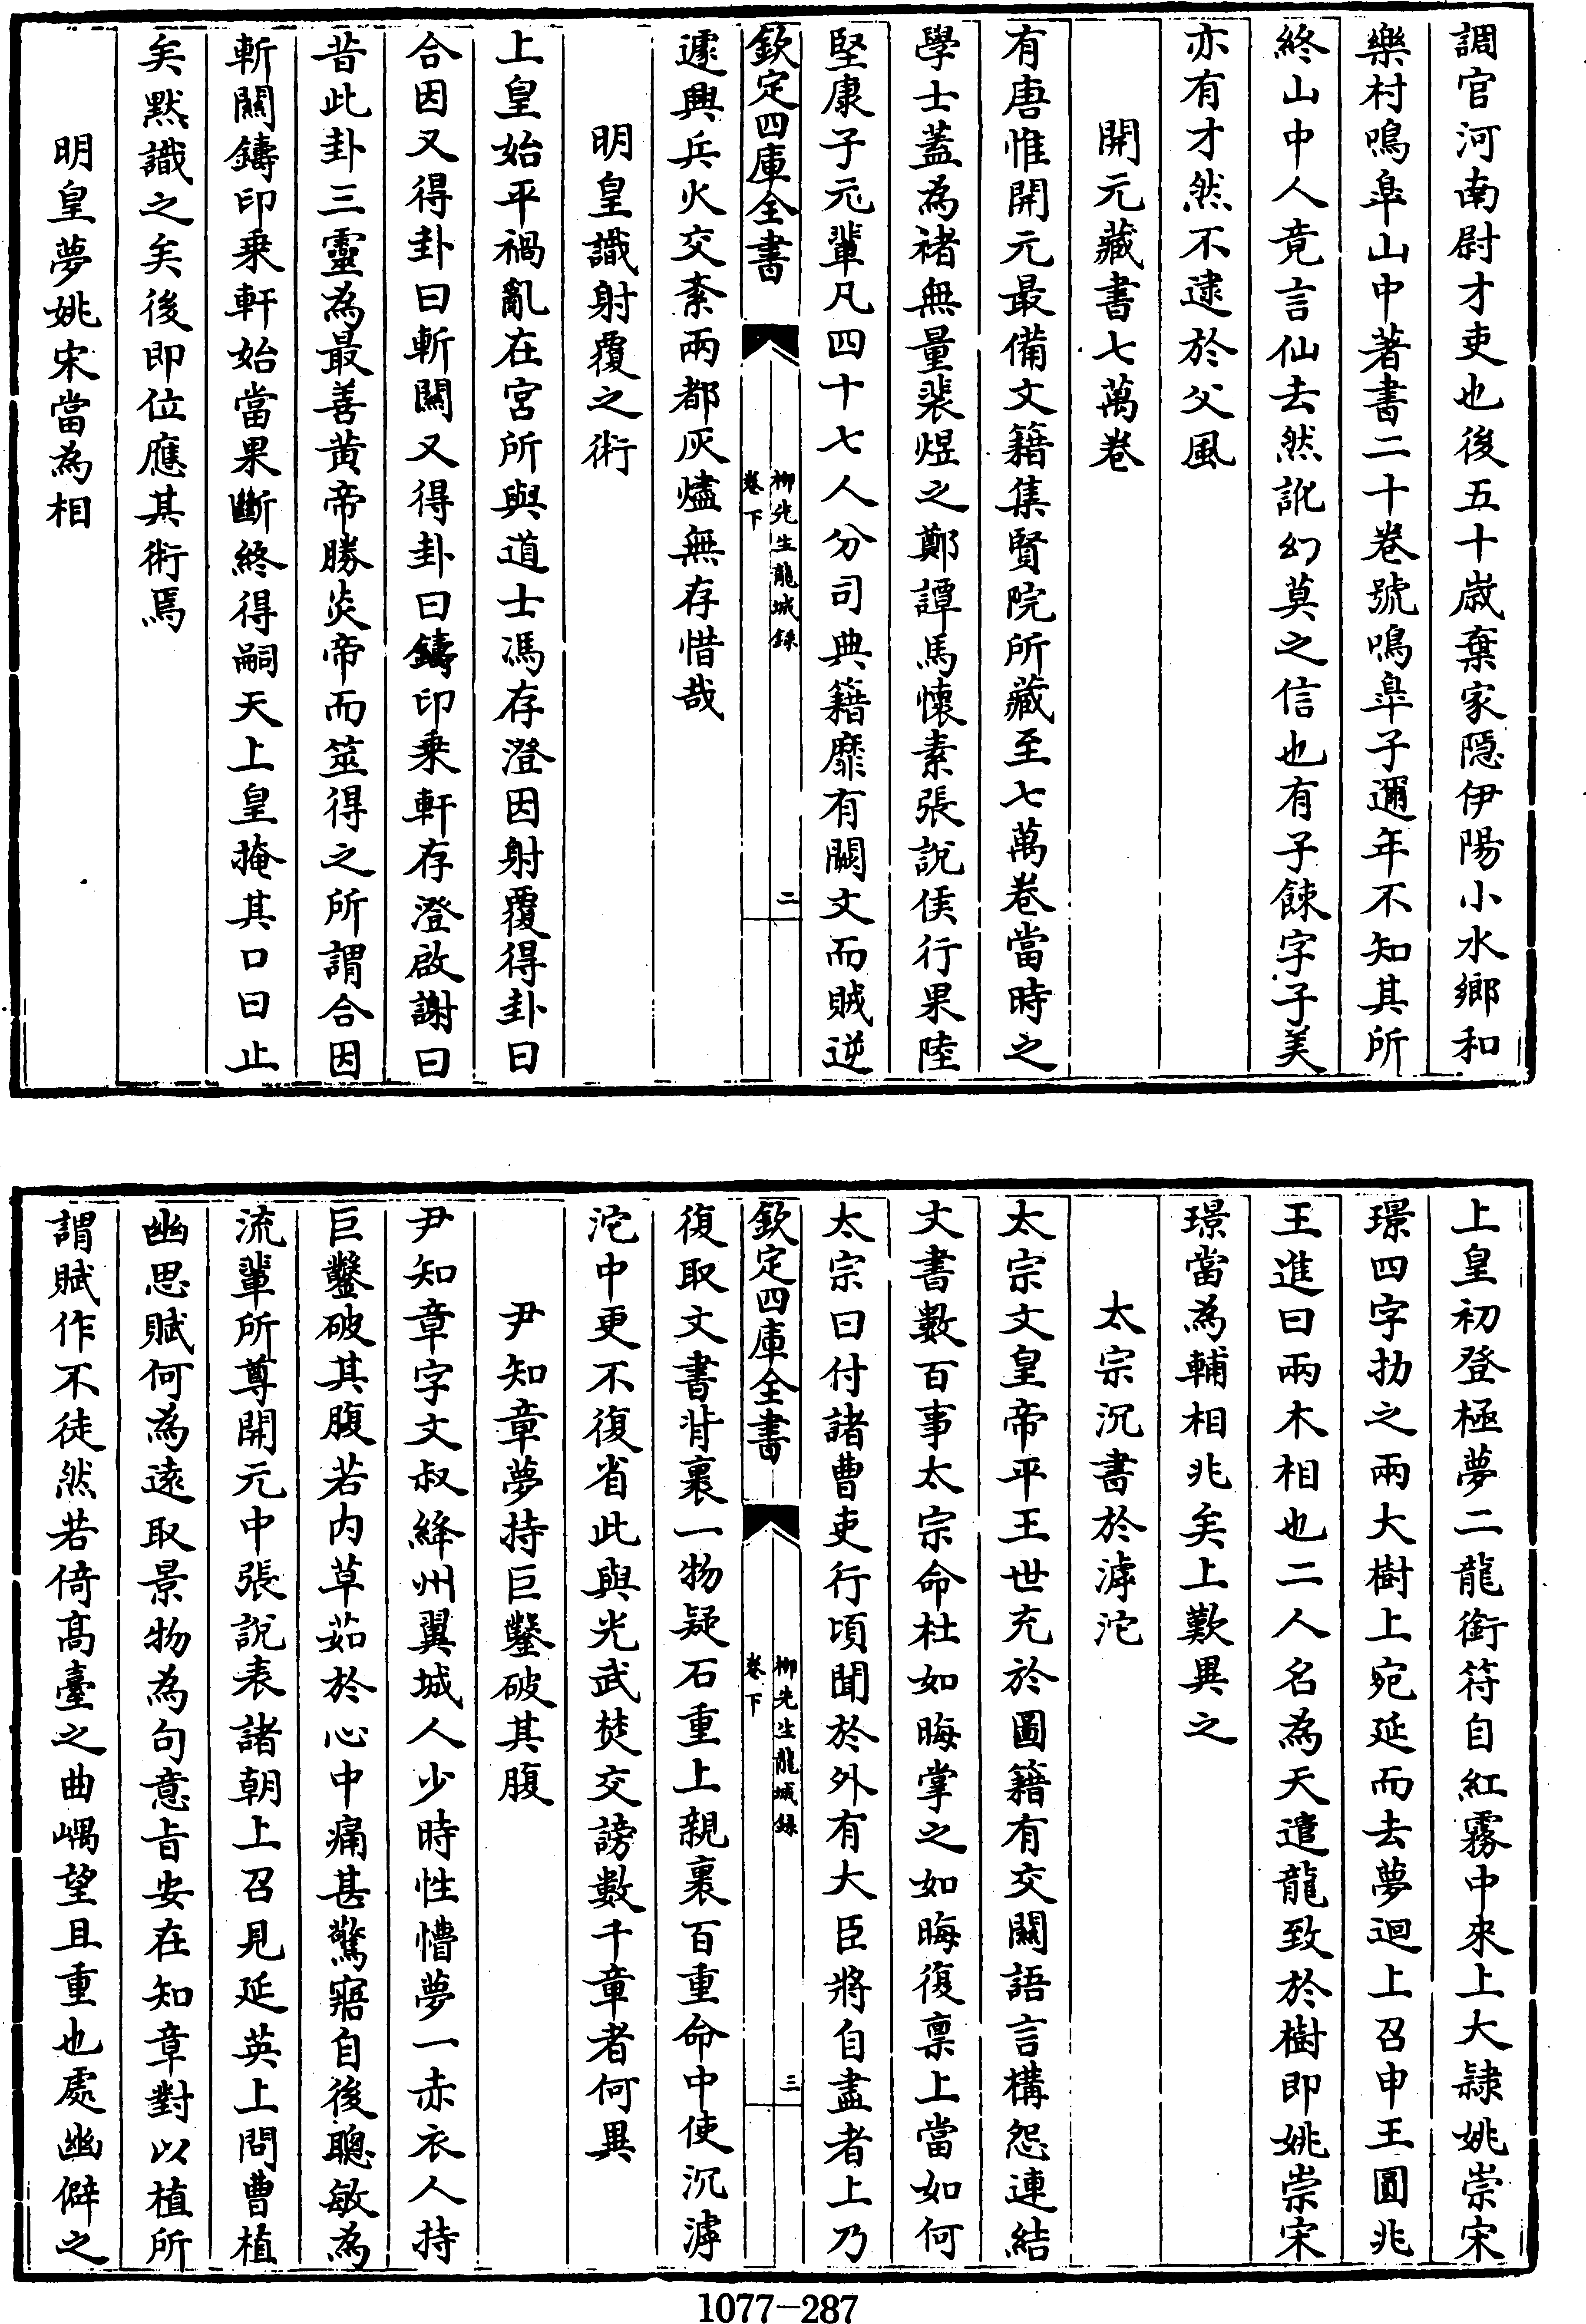 調官河南尉才吏也後五十嵗棄家隠伊陽小水鄉和
樂村鳴臯山中著書二十卷號鳴臯子邇年不知其所
終山中人竟言仙去然訛幻莫之信也有子餗字子美
亦有才然不逮於父風
開元藏書七萬卷
有唐惟開元最備文籍集賢院所藏至七萬卷當時之
學士蓋為褚無量裴煜之鄭譚馬懷素張說侯行果陸
堅康子元輩凡四十七人分司典籍靡有闕文而賊逆
欽定四庫全書
柳先生龍城錄
卷下
二
遽興兵火交紊兩都灰燼無存惜哉
明皇識射覆之術
上皇始平禍亂在宮所與道士馮存澄因射覆得卦曰
合因又得卦曰斬關又得卦曰鑄印乗軒存澄啟謝曰
昔此卦三靈為最善黄帝勝炎帝而筮得之所謂合因
斬關鑄印乗軒始當果斷終得嗣天上皇掩其口曰止
矣黙識之矣後即位應其術焉
明皇夢姚宋當為相
上皇初登極夢二龍銜符自紅霧中來上大隷姚崇宋
璟四字扐之兩大樹上宛延而去夢迴上召申王圓兆
王進曰兩木相也二人名為天遣龍致於樹即姚崇宋
璟當為輔相兆矣上歎異之
太宗沉書於滹沱
太宗文皇帝平王世充於圖籍有交關語言構怨連結
文書數百事太宗命杜如晦掌之如晦復禀上當如何
太宗曰付諸曹吏行頃聞於外有大臣將自盡者上乃
欽定四庫全書
柳先生龍城錄
卷下
三
復取文書背裹一物疑石重上親裹百重命中使沉滹
沱中更不復省此與光武焚交謗數千章者何異
尹知章夢持巨鑿破其腹
尹知章字文叔絳州翼城人少時性懵夢一赤衣人持
巨鑿破其腹若内草茹於心中痛甚驚寤自後聰敏為
流輩所尊開元中張說表諸朝上召見延英上問曹植
幽思賦何為逺取景物為句意旨安在知章對以植所
謂賦作不徒然若倚髙臺之曲嵎望且重也處幽僻之
1077-287